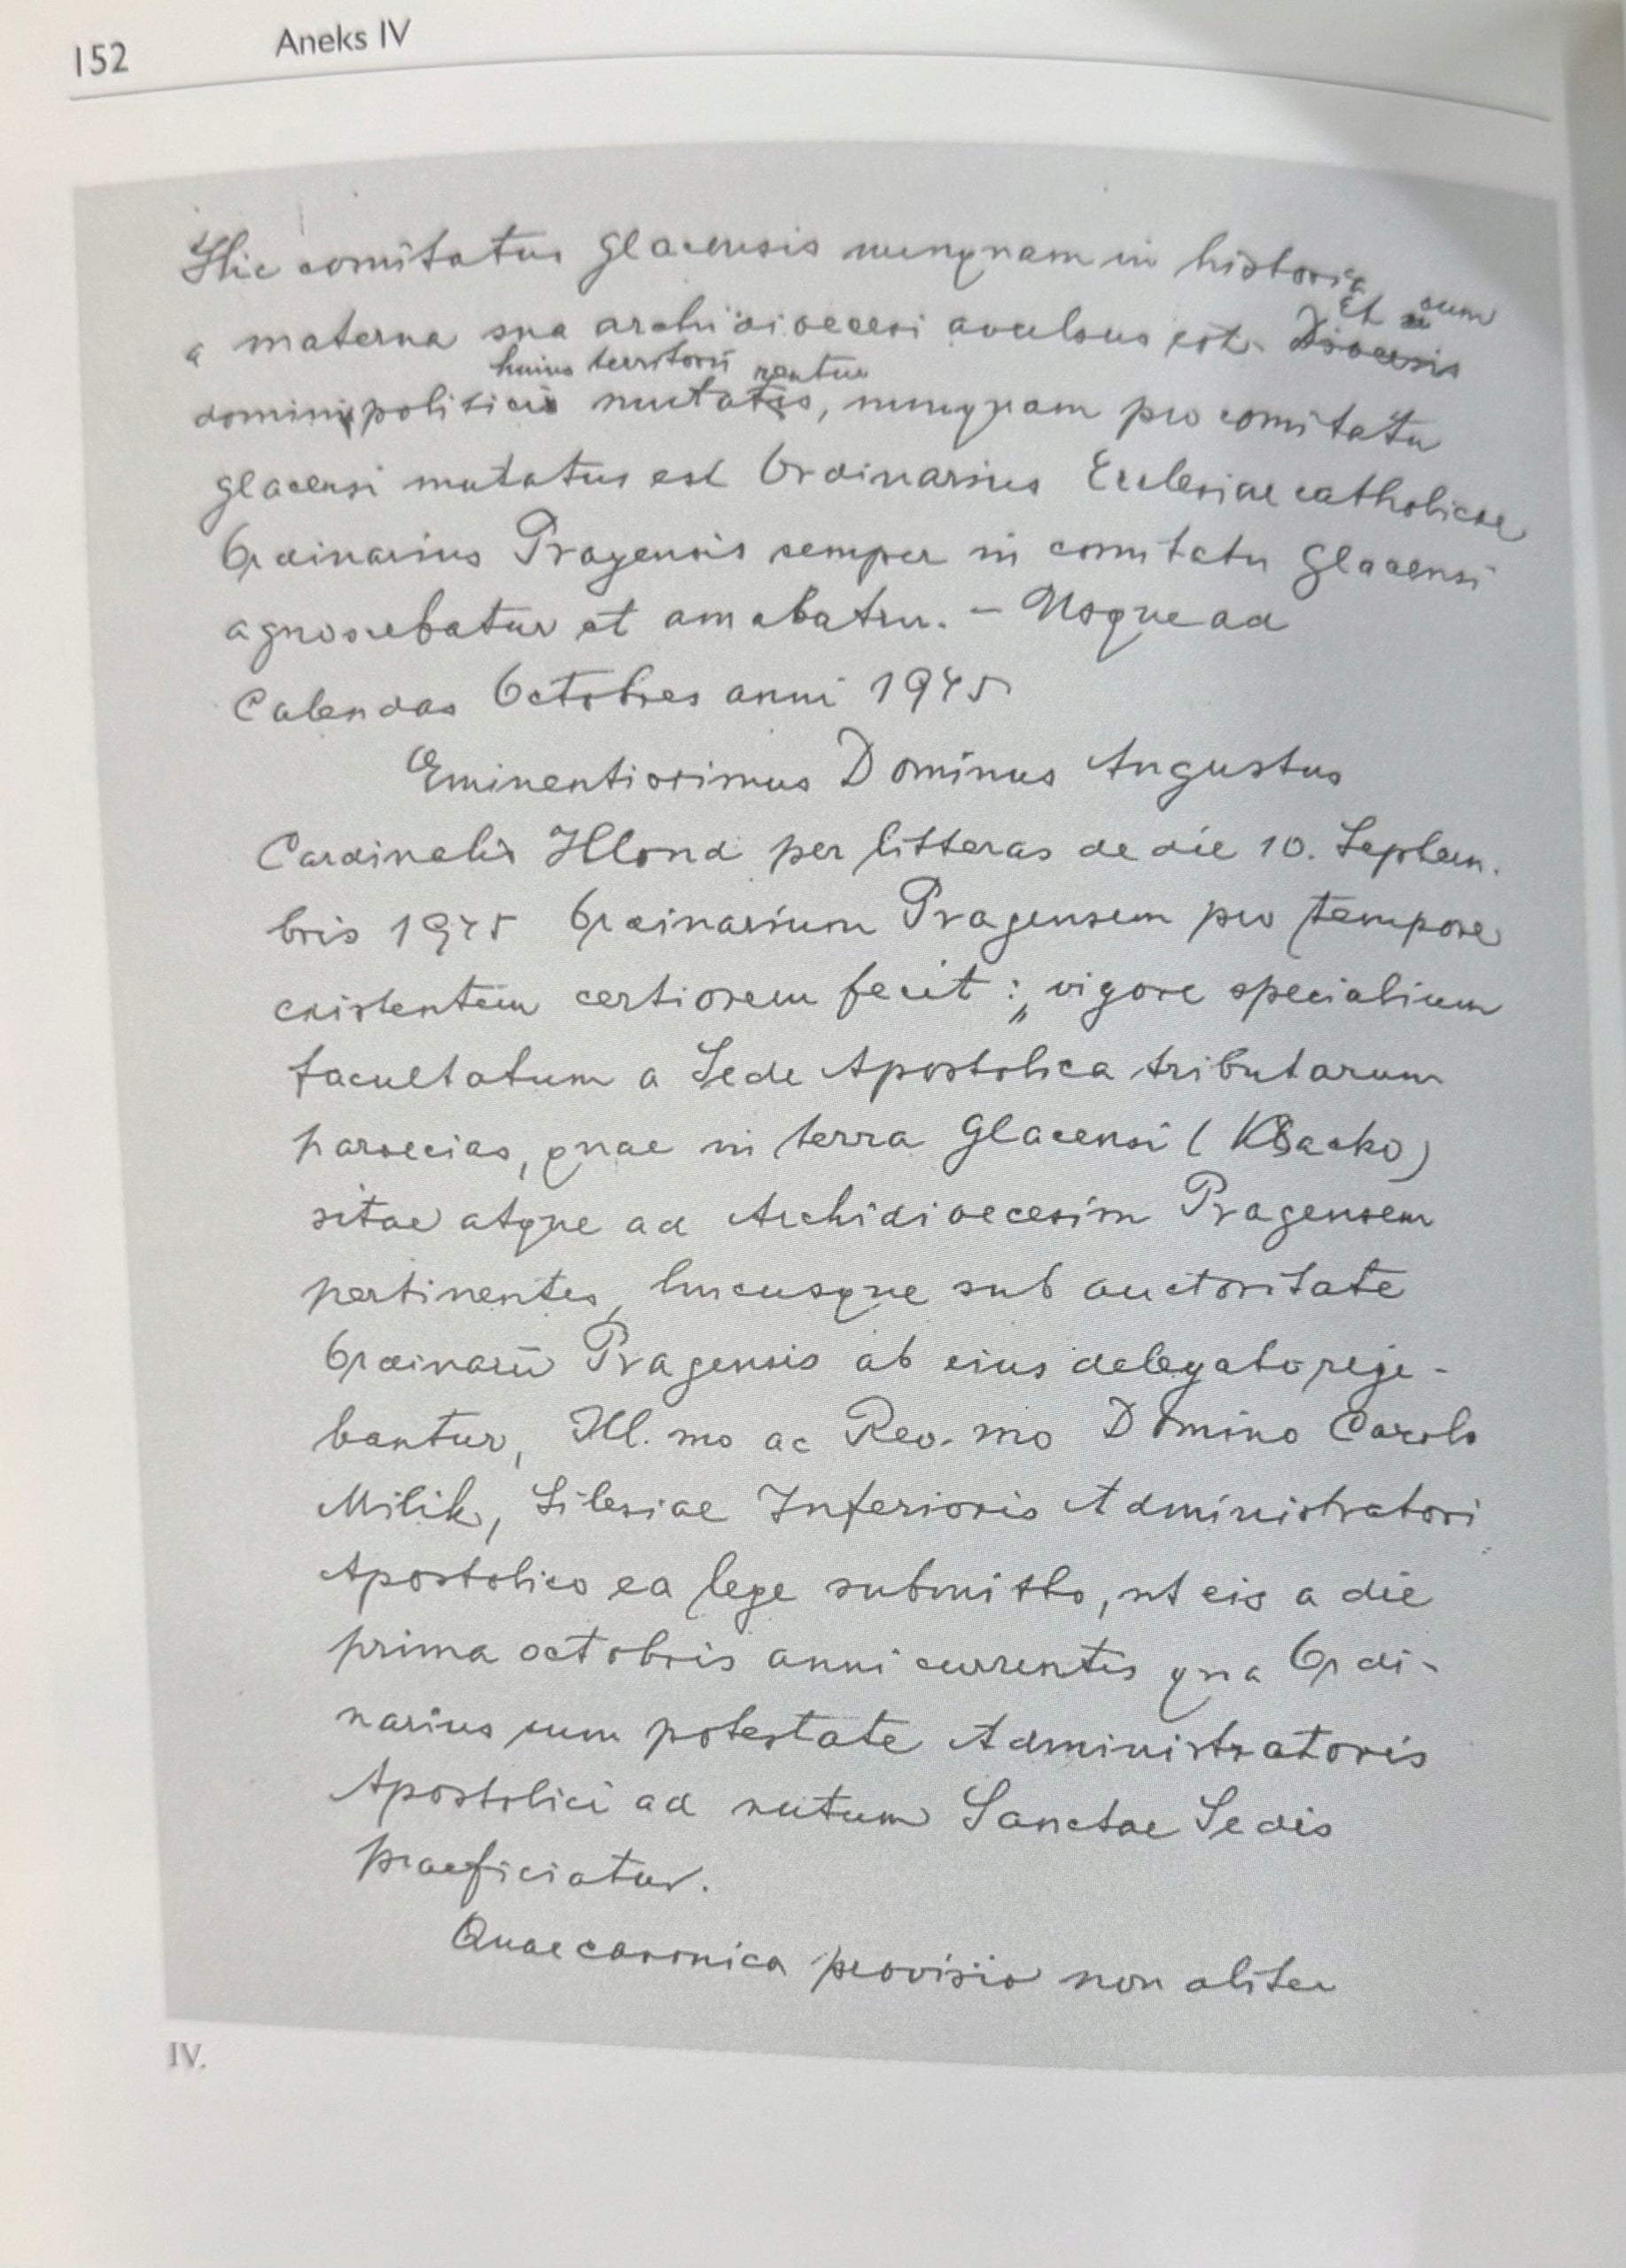 152 Aneks IV
Hic comitatus glacensis nunquam in historia
a materna sua archidioecesi avulsus est. Et cum
huius territorii rentur
domini politici mutatis, nunquam pro comitatu
glacensi mutatus est Ordinarius Ecclesiae catholicae
Ordinarius Pragensis semper in comitatu Glacensi
agnoscebatur et amabatur. – Usque ad
Calendas Octobres anni 1945
Eminentissimus Dominus Augustus
Cardinalis Hlond per litteras de die 10. Septem-
bris 1945 Ordinarium Pragensem pro tempore
existentem certiorem fecit: „vigore specialium
facultatum a Sede Apostolica tributarum
paroecias, quae in terra Glacensi (Klacko)
sitae atque ad Archidioecesim Pragensem
pertinentes, hucusque sub auctoritate
Ordinarii Pragensis ab eius delegato rege-
bantur, Ill.mo ac Rev.mo Domino Carolo
Milik, Silesiae Inferioris Administratori
Apostolico ea lege submitto, ut eis a die
prima octobris anni currentis qua Ordi-
narius cum potestate Administratoris
Apostolici ad nutum Sanctae Sedis
praeficiatur.
Quae canonica provisio non aliter
IV.